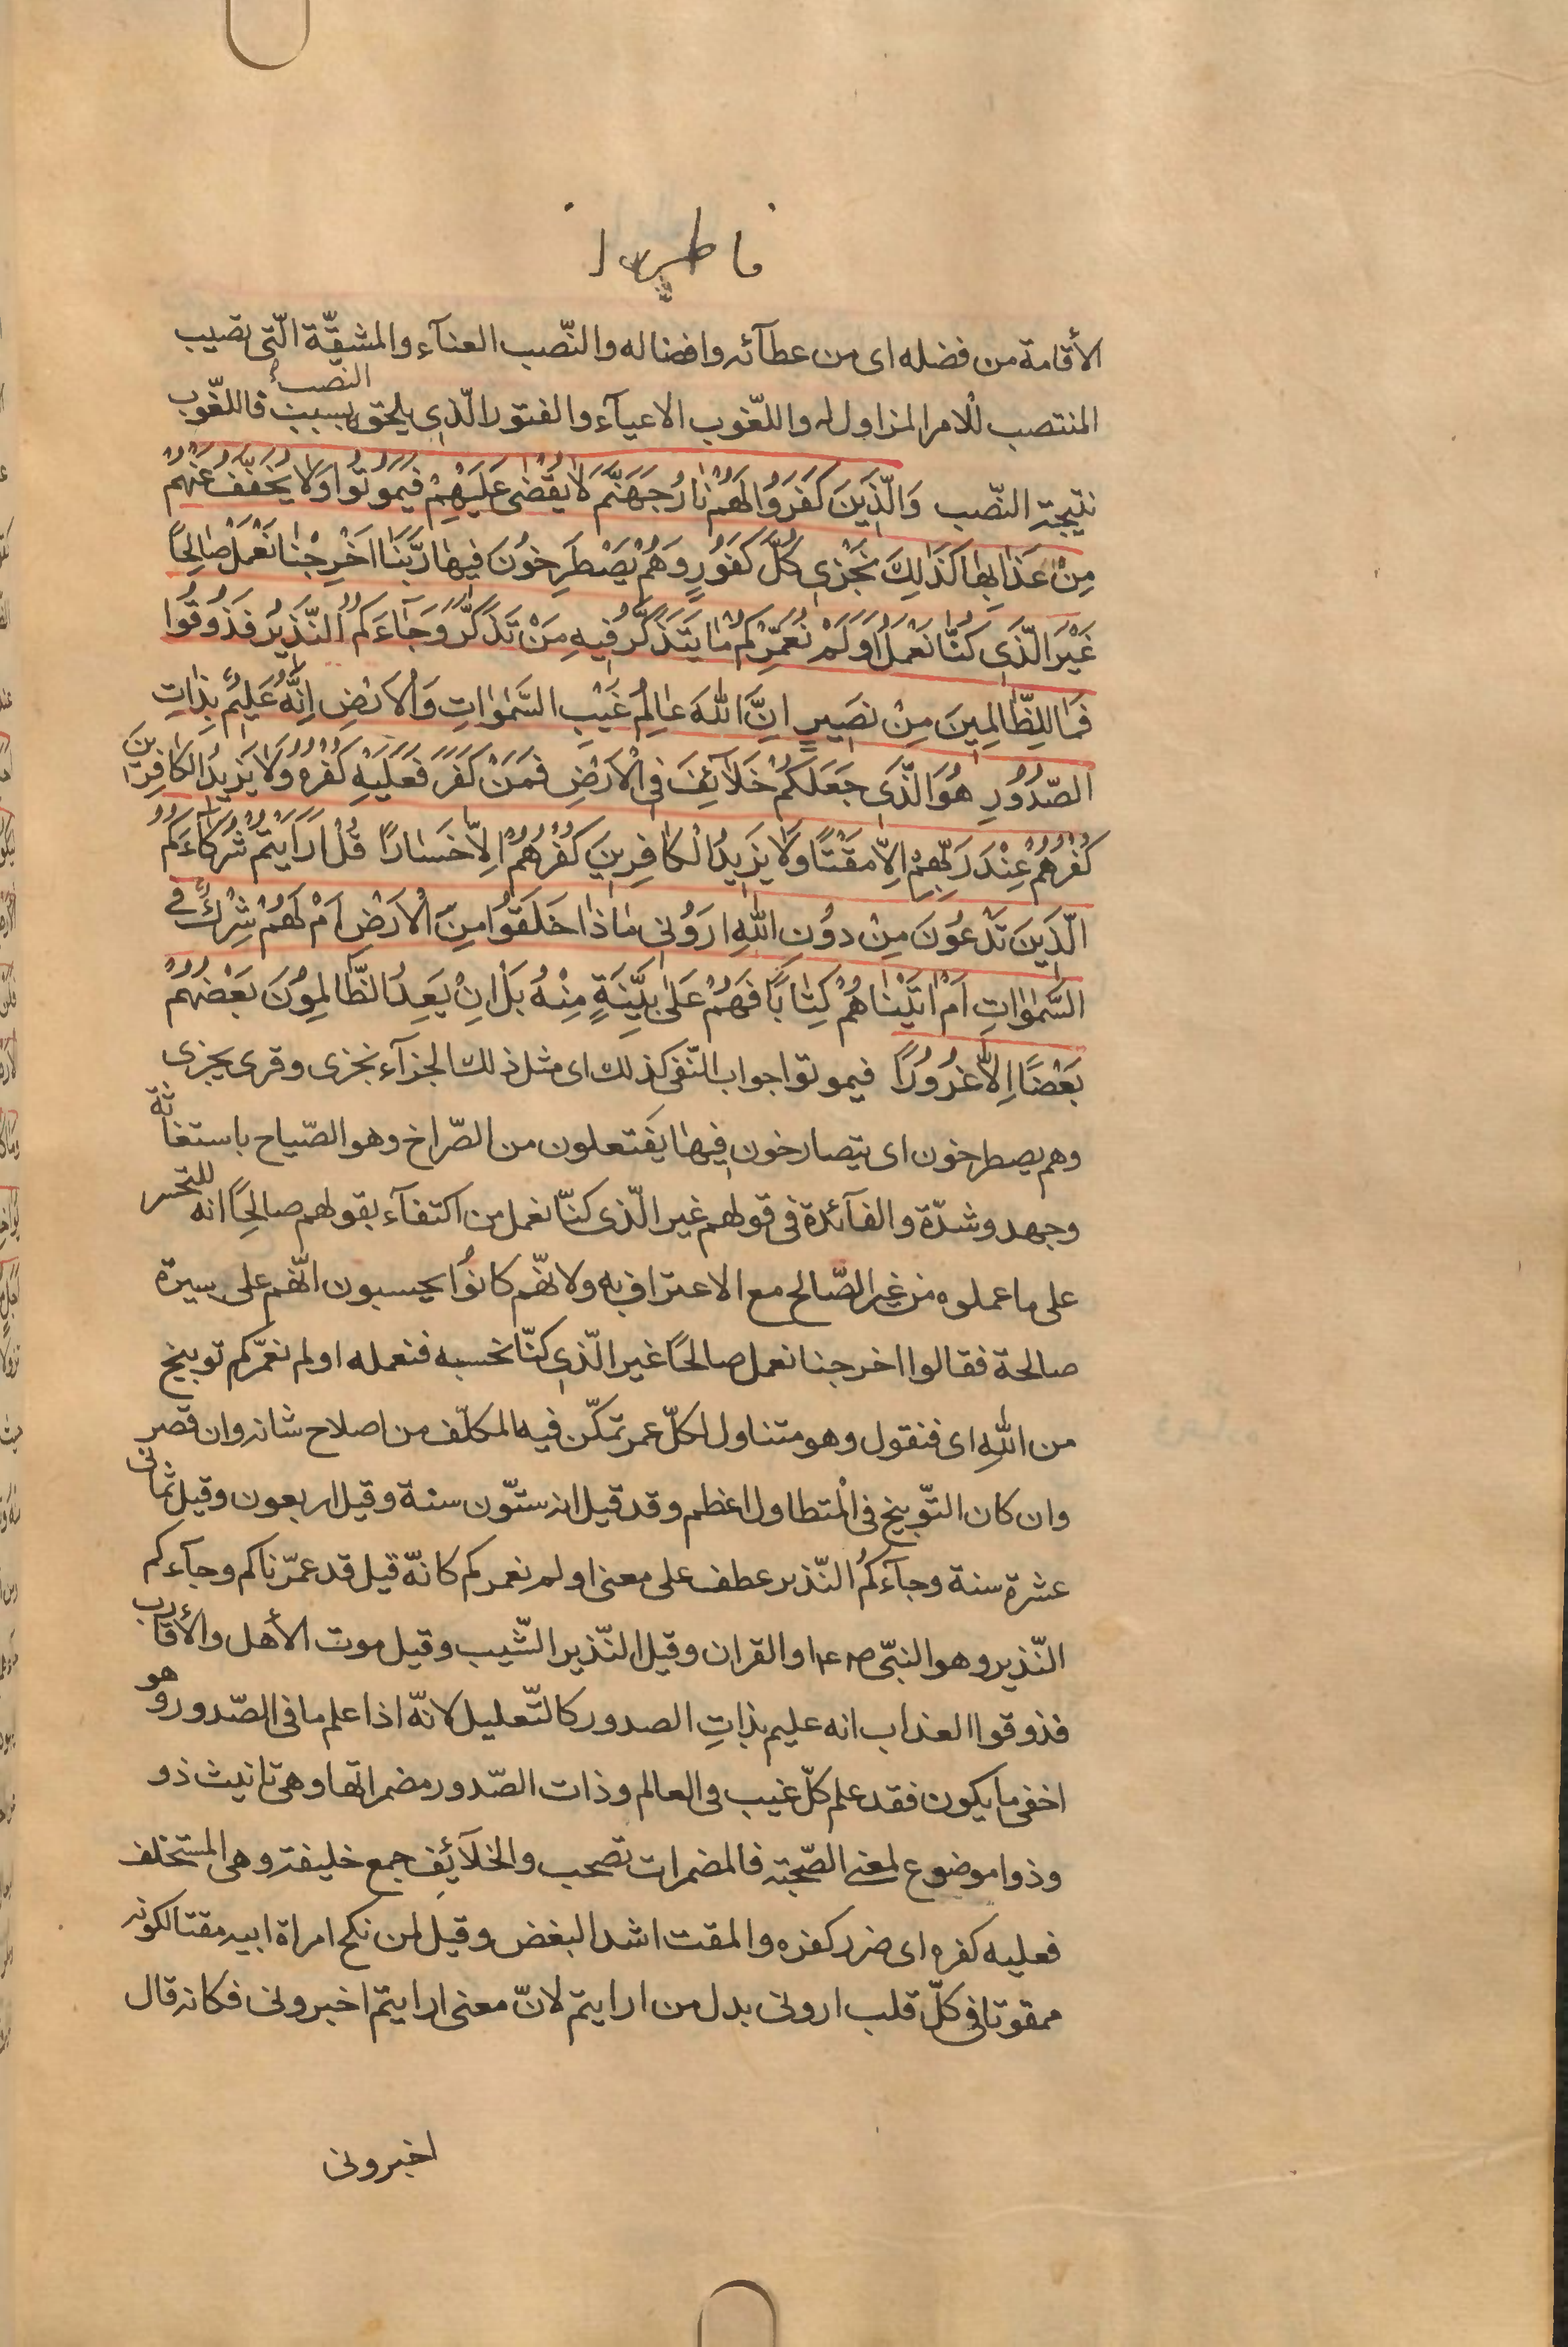 فاطر
الأقامة من فضله اى من عطآئه وافضاله والنّصب العنآء والمشقّة الّتى تصيب
النصب
المنتصب للامر المزاول له واللّغوب الاعيآء والفتور الّذى يلحقه بسبب فاللّغوب
نتيجة النّصب وَالَّذَينَ كَفَرَوُا لَهُمْ نٰارُ جَهَنَّمَ لاٰ يُقْضٰى عَلَيْهِمْ فَيَمُوتُوا وَلاٰ يُخَفَّفُ عَنْهُمْ
مِنْ عَذٰابِهٰا كَذٰلِكَ نَجْزى كُلَّ كَفُورٍ وَهُمْ يَصْطَرِخوُنَ فيهٰا رَبَّنٰا اَخْرِجْنٰا نَعْمَلْ صٰالِحًا
غَيْرَ الَّذى كُنّٰا نَعْمَلُ اَوَلَمْ نُعَمِّرْكُمْ مٰا يَتَذَكَّرُ فيهِ مَنْ تَذَكَّرَ وَجٰآءَكُمُ النَّذيرُ فَذُوقُوا
فَمٰا لِلظّٰالِمينَ مِنْ نَصيرٍ اِنَّ اللّٰهَ عٰالِمُ غَيْبِ السَّمٰوٰاتِ وَالْاَرْضِ اِنَّهُ عَليمٌ بِذٰاتِ
الصُّدُورِ هُوَ الَّذى جَعَلَكُمْ خَلاٰئِفَ فِى الْاَرْضِ فَمَنْ كَفَرَ فَعَلَيْهِ كُفْرُهُ وَلاٰ يَزيدُ الْكٰافِرينَ
كُفْرُهُمْ عِنْدَ رَبِّهِمْ اِلاّٰ مَقْتًا وَلاٰ يَزيدُ الْكٰافِرينَ كُفْرُهُمْ اِلاّٰ خَسٰارًا قُلْ اَرَاَيْتُمْ شُرَكٰاءَكُمُ
الَّذينَ تَدْعُونَ مِنْ دوُنِ اللّٰهِ اَروُنى مٰا ذٰا خَلَقُوا مِنَ الْاَرْضِ اَمْ لَهُمْ شِرْكٌ فى
السَّمٰوٰاتِ اَمْ اٰتَيْنٰاهُمْ كِتٰابًا فَهُمْ عَلىٰ بَيِّنَةٍ مِنْهُ بَلْ اِنْ يَعِدُ الظّٰالِموُنَ بَعْضُهُمْ
بَعْضًا اِلاّٰ غُرُورًا فيموتوا جواب النّفى كذلك اى مثل ذلك الجزآء نجزى وقرى يجزى
وهم يصطرخون اى يتصارخون فيهٰا يفتعلون من الصّراخ وهو الصّياح باستغاثة
وجهد وشدّة والفآئدة فى قولهم غير الّذى كنّا نعمل من اكتفآء بقولهم صالحًا انه للتحسر
على ما عملوه من غير الصّالح مع الاعتراف به ولانّهم كانوُا يحسبون انّهم على سيرة
صالحة فقالوا اخرجنا نعمل صالحًا غير الّذى كنّا نحسبه فنعمله اولم نعمّركم توبيخ
من اللّٰهِ اى فنقول وهو متناول لكلّ عمر تمكّن فيه المكلّف من اصلاح شانه وان قصر
وان كان التّوبيخ فى المْتطاول اعظم وقد قيل انه ستّون سنة وقيل اربعون وقيل ثمانى
عشرة سنة وجآءكمُ النّذير عطف على معنى اولم نعمركم كانّه قيل قد عمّرناكم وجآءكم
النّذير وهو النبّى ص او القران وقيل النّذير الشّيب وقيل موت الأهل والأقارب
فذوقوا العذاب انه عليم بذاتِ الصدور كالتّعليل لانّه اذا علم ما فى الصّدور وهو
اخفى ما يكون فقد علم كلّ غيب فى العالم وذات الصّدور مضمراتها وهى تانيث ذو
وذو موضوع لمعنى الصّحبة فالمضمرات تصحب والخلآئِف جمع خليفة وهى المستخلف
فعليه كفره اى ضرر كفره والمقت اشد البغض وقيل لمن نكح امراة ابيه مقتا لكونه
ممقوتا فى كلّ قلب ارونى بدل من ارايتم لانّ معنى ارايتم اخبرونى فكانه قال
اخبرونى